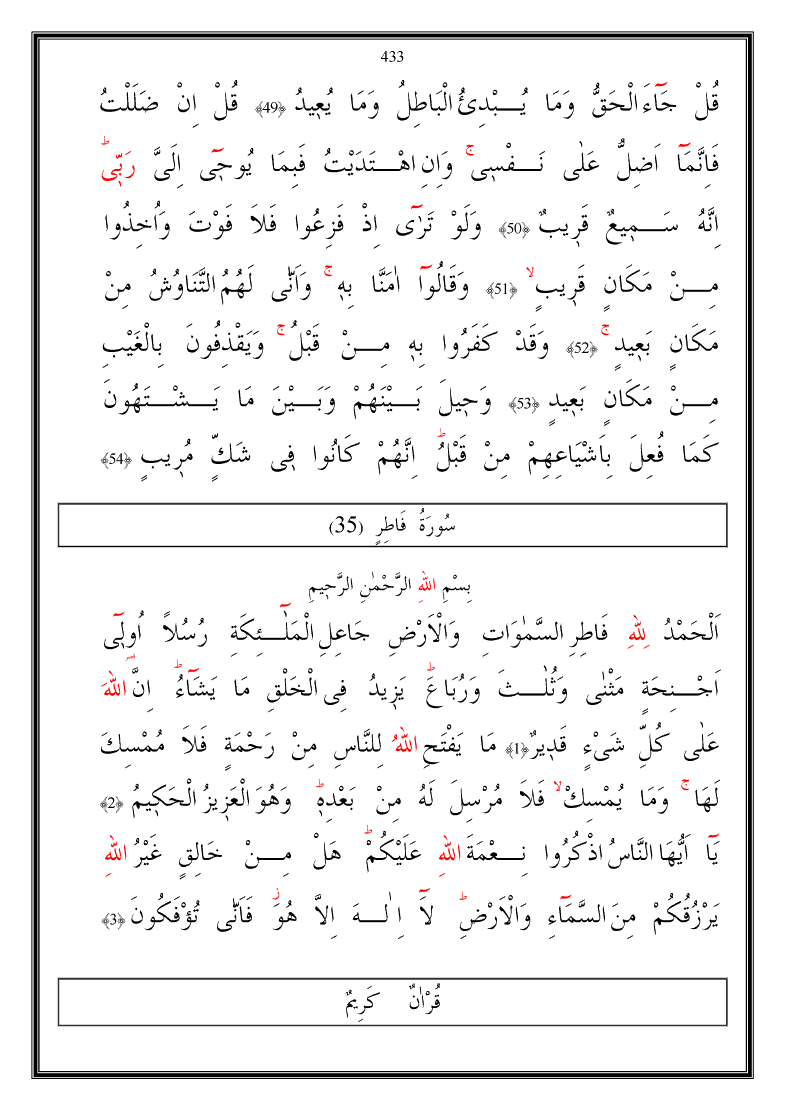 433
قُلْ جَٓاءَ الْحَقُّ وَمَا يُـــبْدِئُ الْبَاطِلُ وَمَا يُعٖيدُ ﴿49﴾ قُلْ اِنْ ضَلَلْتُ
فَاِنَّمَٓا اَضِلُّ عَلٰى نَـــفْسٖى ۚ وَاِنِ اهْـــتَدَيْتُ فَبِمَا يُوحٖٓى اِلَىَّ رَبّٖى ؕ
اِنَّهُ سَـــمٖيعٌ قَرٖيبٌ ﴿50﴾ وَلَوْ تَرٰٓى اِذْ فَزِعُوا فَلاَ فَوْتَ وَاُخِذُوا
مِـــنْ مَكَانٍ قَرٖيبٍ ۙ ﴿51﴾ وَقَالُٓوا اٰمَنَّا بِهٖ ۚ وَاَنّٰى لَهُمُ التَّنَاوُشُ مِنْ
مَكَانٍ بَعٖيدٍ ۚ ﴿52﴾ وَقَدْ كَفَرُوا بِهٖ مِـــنْ قَبْلُ ۚ وَيَقْذِفُونَ بِالْغَيْبِ
مِـــنْ مَكَانٍ بَعٖيدٍ ﴿53﴾ وَحٖيلَ بَـــيْنَهُمْ وَبَـــيْنَ مَا يَـــشْـــتَهُونَ
كَمَا فُعِلَ بِاَشْيَاعِهِمْ مِنْ قَبْلُ ؕ اِنَّهُمْ كَانُوا فٖى شَكٍّ مُرٖيبٍ ﴿54﴾
سُورَةُ فَاطِرٍ (35)
بِسْمِ اللهِ الرَّحْمٰنِ الرَّحٖيمِ
اَلْحَمْدُ لِلّٰهِ فَاطِرِ السَّمٰوَاتِ وَالْاَرْضِ جَاعِلِ الْمَلٰٓـــئِكَةِ رُسُلاً اُولٖٓى
اَجْـــنِحَةٍ مَثْنٰى وَثُلٰـــثَ وَرُبَاعَ ؕ يَزٖيدُ فِى الْخَلْقِ مَا يَشَٓاءُ ؕ اِنَّ اللهَ
عَلٰى كُلِّ شَىْءٍ قَدٖيرٌ ﴿1﴾ مَا يَفْتَحِ اللهُ لِلنَّاسِ مِنْ رَحْمَةٍ فَلاَ مُمْسِكَ
لَهَا ۚ وَمَا يُمْسِكْ ۙ فَلاَ مُرْسِلَ لَهُ مِنْ بَعْدِهٖ ؕ وَهُوَ الْعَزٖيزُ الْحَكٖيمُ ﴿2﴾
يَٓا اَيُّهَا النَّاسُ اذْكُرُوا نِـــعْمَةَ اللهِ عَلَيْكُمْ ؕ هَلْ مِـــنْ خَالِقٍ غَيْرُ اللهِ
يَرْزُقُكُمْ مِنَ السَّمَٓاءِ وَالْاَرْضِ ؕ لَٓا اِلٰـــهَ اِلاَّ هُوَ ؗ فَاَنّٰى تُؤْفَكُونَ ﴿3﴾
قُرْاٰنٌ كَرٖيمٌ